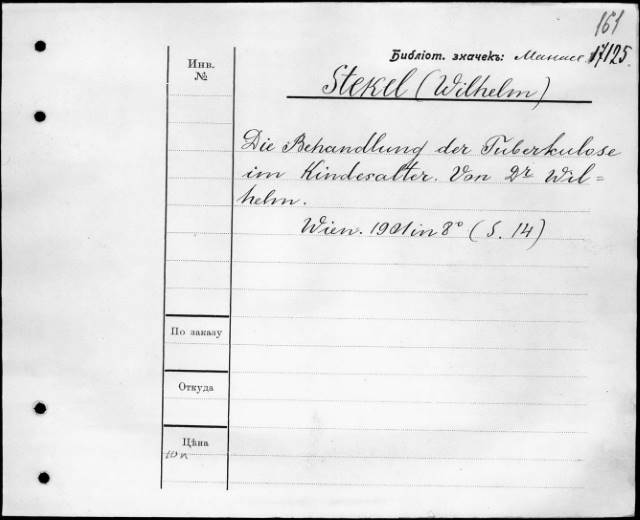 161
Инв.
№
Библіот. значекъ: Манасс. 17125.
Stekel (Wilhelm)
Die Behandlung der Tuberkulose
im Kindesalter. Von Dr Wil=
helm.
Wien. 1901 in 8° (S. 14)
По заказу
Откуда
Цѣна
10 к